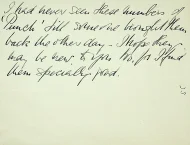 I had never seen these numbers of
'Punch' till someone brought them
back the other day – I hope they
may be new to you too, for I find
them specially good.